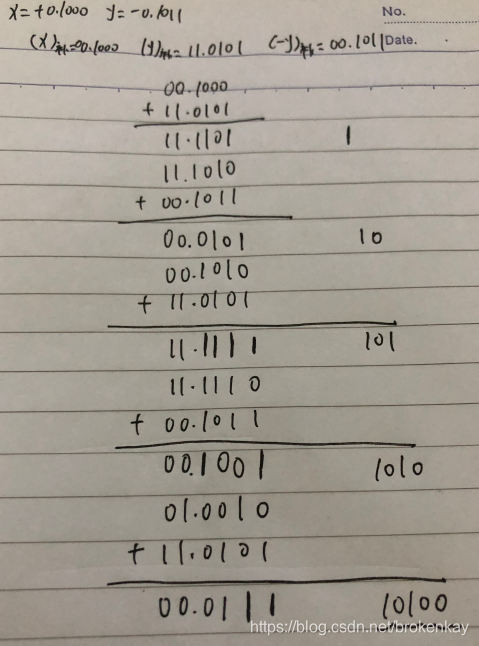 x=+0.1000 y=-0.1011 No.
(x)补=00.1000 (y)补=11.0101 (-y)补=00.1011 Date.
00.1000
+ 11.0101
11.1101 1
11.1010
+ 00.1011
00.0101 10
00.1010
+ 11.0101
11.1111 101
11.1110
+ 00.1011
00.1001 1010
01.0010
+ 11.0101
00.0111 10100
https://blog.csdn.net/brokenkay